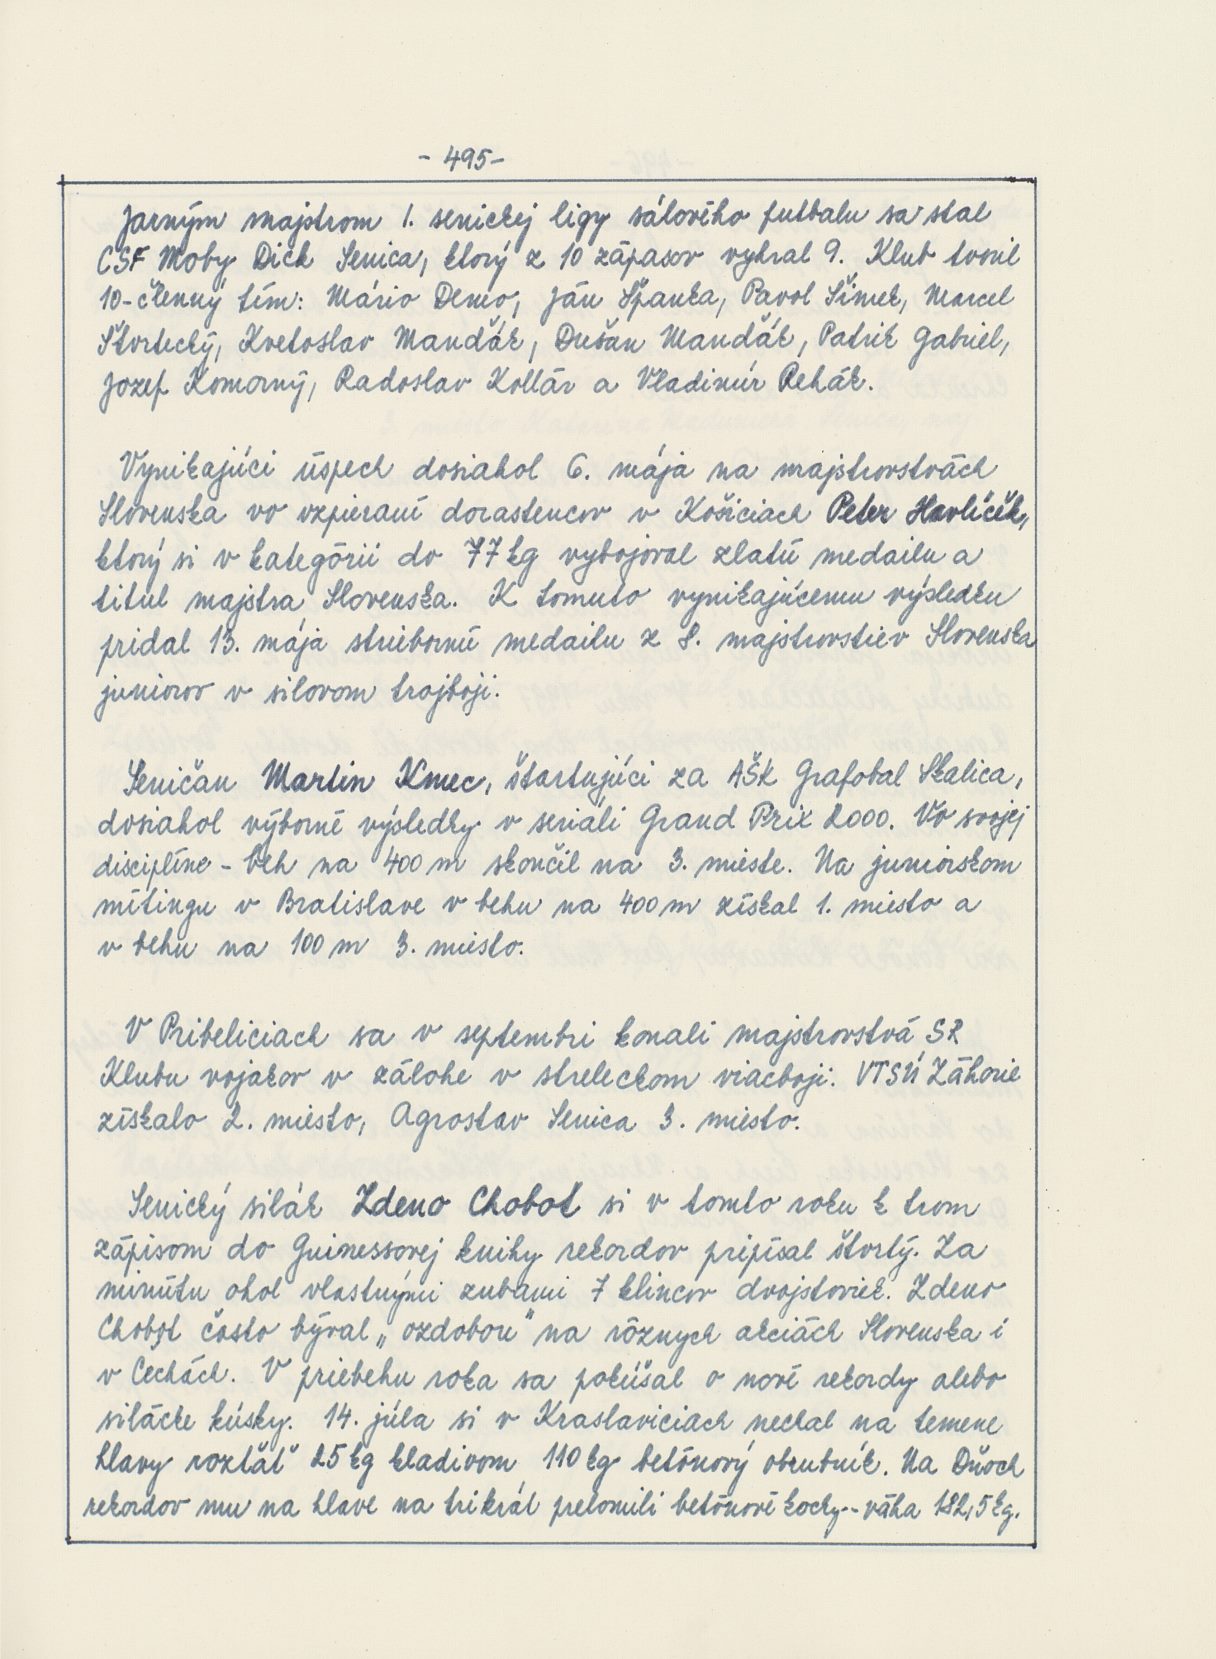 - 495-
Jarným majstrom 1. senickej ligy sálového futbalu sa stal
CSF Moby Dick Senica, ktorý z 10 zápasov vyhral 9. Klub tvoril
10-členný tím: Mário Demo, Ján Španka, Pavol Šimek, Marcel
Štvrtecký, Kvetoslav Mandák, Dušan Mandák, Patrik Gabriel,
Jozef Komorný, Radoslav Kollár a Vladimír Rehák.
Vynikajúci úspech dosiahol 6. mája na majstrovstvách
Slovenska vo vzpieraní dorastencov v Košiciach Peter Havlíček,
ktorý si v kategórii do 77 kg vybojoval zlatú medailu a
titul majstra Slovenska. K tomuto vynikajúcemu výsledku
pridal 13. mája striebornú medailu z 8. majstrovstiev Slovenska
juniorov v silovom trojboji.
Seničan Martin Kmec, štartujúci za AŠK Grafobal Skalica,
dosiahol výborné výsledky v seriáli Grand Prix 2000. Vo svojej
disciplíne - beh na 400 m skončil na 3. mieste. Na juniorskom
mítingu v Bratislave v behu na 400 m získal 1. miesto a
v behu na 100 m 3. miesto.
V Pribeliciach sa v septembri konali majstrovstvá SR
Klubu vojakov v zálohe v streleckom viacboji. VTSÚ Záhorie
získalo 2. miesto, Agrostav Senica 3. miesto.
Senický silák Zdeno Chobot si v tomto roku k trom
zápisom do Guinessovej knihy rekordov pripísal štvrtý. Za
minútu ohol vlastnými zubami 7 klincov dvojstoviek. Zdeno
Chobot často býval „ozdobou" na rôznych akciách Slovenska i
v Čechách. V priebehu roka sa pokúšal o nové rekordy alebo
silácke kúsky. 14. júla si v Kraslaviciach nechal na temene
hlavy roztĺať 25 kg kladivom 110 kg betónový obrubník. Na Dňoch
rekordov mu na hlave na trikrát prelomili betónové kocky - váha 182,5 kg.